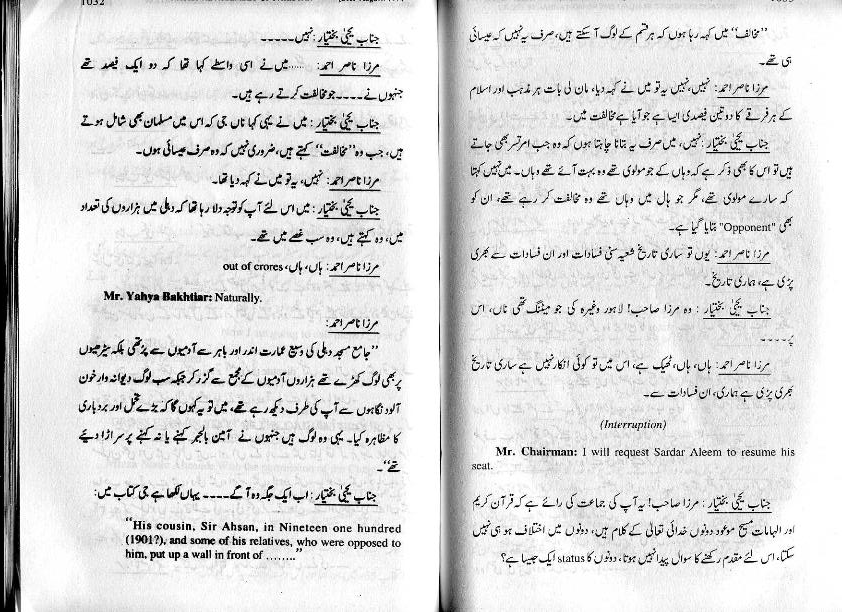 1032
جناب یحییٰ بختیار: نہیں-----
مرزا ناصر احمد: ……میں نے اسی واسطے کہا تھا کہ دو ایک فیصد تھے
جنہوں نے----جو مخالفت کرتے رہے ہیں۔
جناب یحییٰ بختیار: میں نے یہی کہا ناں جی کہ اس میں مسلمان بھی شامل ہوتے
ہیں، جب وہ ”مخالفت“ کہتے ہیں، ضروری نہیں کہ وہ صرف عیسائی ہوں۔
مرزا ناصر احمد: نہیں، یہ تو میں نے کہہ دیا تھا۔
جناب یحییٰ بختیار: میں اس لئے آپ کو توجہ دلا رہا تھا کہ دہلی میں ہزاروں کی تعداد
میں، وہ کہتے ہیں، وہ سب غصے میں تھے۔
مرزا ناصر احمد: ہاں، ہاں، out of crores
Mr. Yahya Bakhtiar: Naturally.
مرزا ناصر احمد:
”جامع مسجد دہلی کی وسیع عمارت اندر اور باہر سے آدمیوں سے پُر تھی بلکہ سیڑھیوں
پر بھی لوگ کھڑے تھے ہزاروں آدمیوں کے مجمع سے گزر کر جبکہ سب لوگ دیوانہ وار خون
آلود نگاہوں سے آپ کی طرف دیکھ رہے تھے، میں تو یہ کہوں گا کہ بڑے تحمل اور بردباری
کا مظاہرہ کیا۔ یہی وہ لوگ ہیں جنہوں نے آمین بالجبر کہنے یا نہ کہنے پر سر اڑا دیئے
تھے“۔
جناب یحییٰ بختیار: اب ایک جگہ وہ آگے---- یہاں لکھا ہے جی کتاب میں:
"His cousin, Sir Ahsan, in Nineteen one hundred
(1901?), and some of his relatives, who were opposed to
him, put up a wall in front of ........"
”مخالف“ میں کہہ رہا ہوں کہ ہر قسم کے لوگ آ سکتے ہیں، صرف یہ نہیں کہ عیسائی
ہی تھے۔
مرزا ناصر احمد: نہیں، نہیں یہ تو میں نے کہہ دیا، مان لی بات ہر مذہب اور اسلام
کے ہر فرقے کا دو تین فیصدی ایسا ہے جو آیا ہے مخالفت میں۔
جناب یحییٰ بختیار: نہیں، میں صرف یہ بتانا چاہتا ہوں کہ وہ جب امرتسر بھی جاتے
ہیں تو اس کا بھی ذکر ہے کہ وہاں کے جو مولوی تھے وہ بہت آئے تھے وہاں۔ میں نہیں کہتا
کہ سارے مولوی تھے، مگر جو ہال میں وہاں تھے وہ مخالفت کر رہے تھے، ان کو
بھی "Opponent" بتایا گیا ہے۔
مرزا ناصر احمد: یوں تو ساری تاریخ شعیہ سنی فسادات اور ان فسادات سے بھری
پڑی ہے، ہماری تاریخ۔
جناب یحییٰ بختیار: وہ مرزا صاحب! لاہور وغیرہ کی جو میٹنگ تھی ناں، اس
پر----
مرزا ناصر احمد: ہاں، ہاں، ٹھیک ہے، اس میں تو کوئی انکار نہیں ہے ساری تاریخ
بھری پڑی ہے ہماری، ان فسادات سے۔
(Interruption)
Mr. Chairman: I will request Sardar Aleem to resume his
seat.
جناب یحییٰ بختیار: مرزا صاحب! یہ آپ کی جماعت کی رائے ہے کہ قرآن کریم
اور الہامات مسیح موعود دونوں خدائی تعالیٰ کے کلام ہیں، دونوں میں اختلاف ہو ہی نہیں
سکتا، اس لئے مقدم رکھنے کا سوال پیدا نہیں ہوتا، دونوں کا status ایک جیسا ہے؟